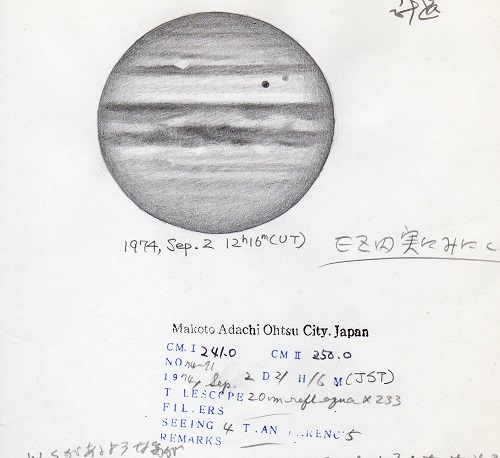 1974, Sep. 2 12h16m(UT)
EZ内 実にみにく
Makoto Adachi Ohtsu City. Japan
CM. I 241.0 CM II 250.0
NO 74-91
1974, Sep. 2 D 21 H 16 M (JST)
T LESCOPE 20cm refl × 233
FIL.ERS
SEEING 4 T.AN .RENC 5
REMARKS